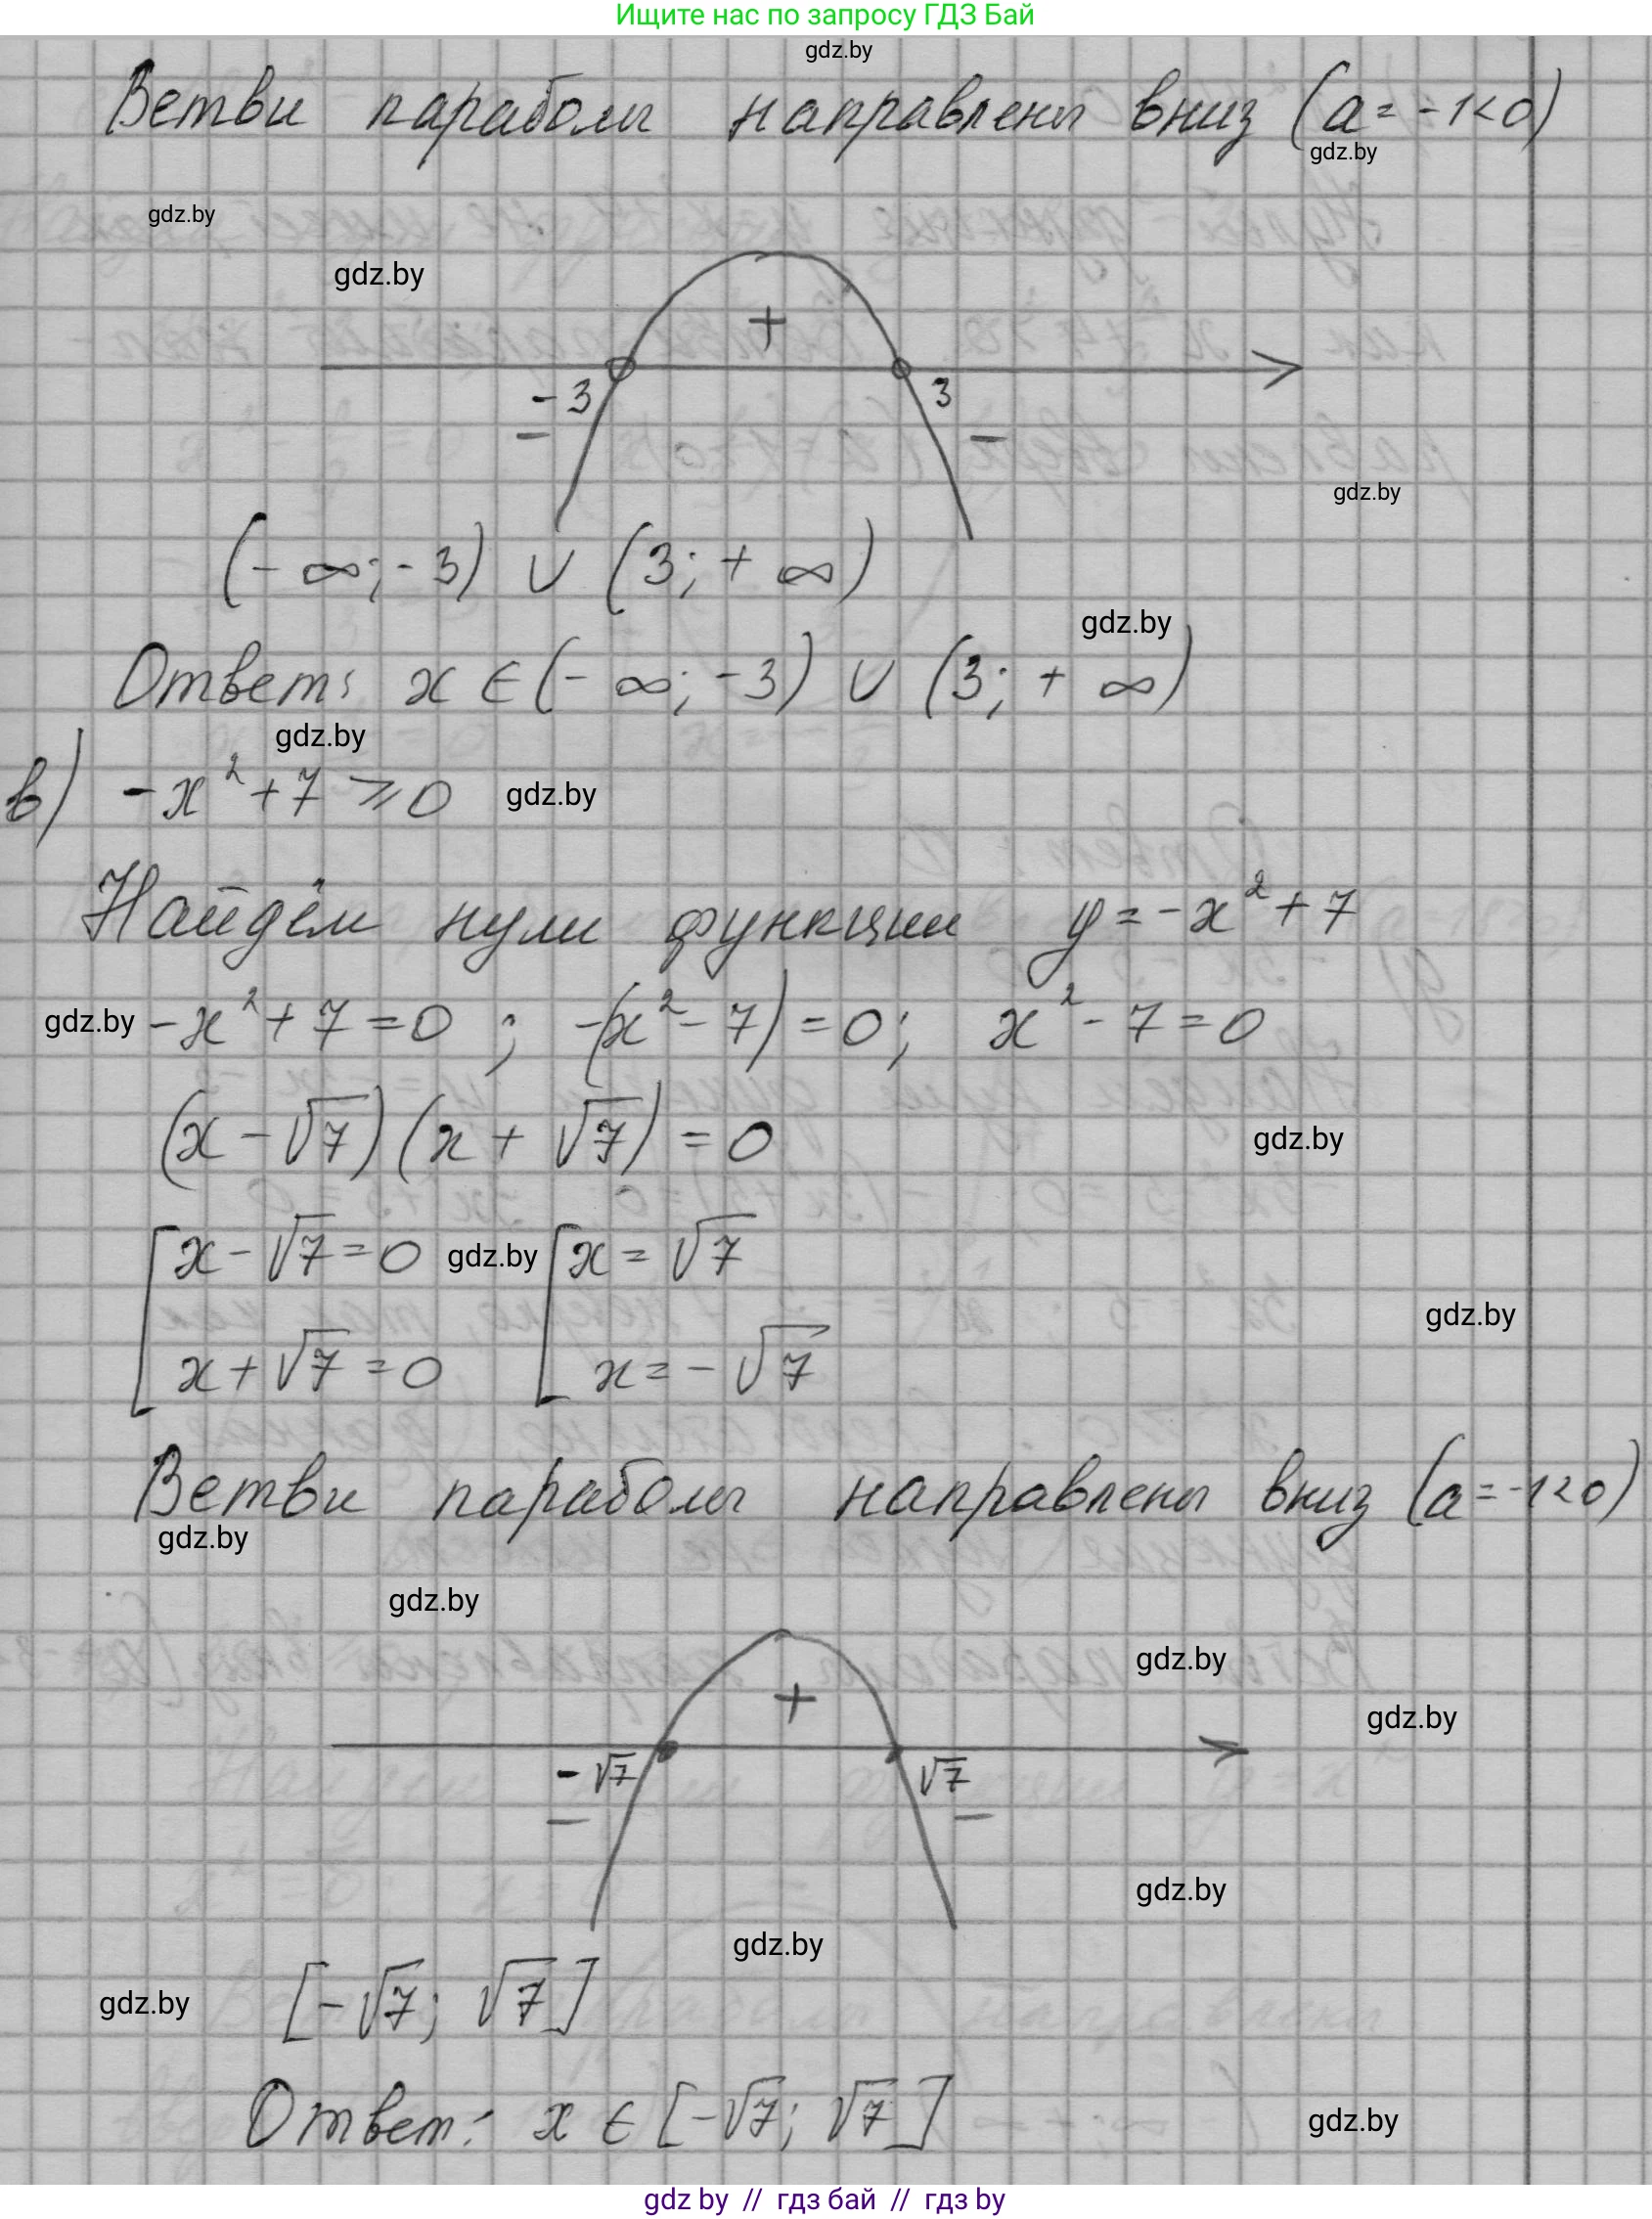 Ищите нас по запросу ГДЗ Бай
gdz.by
Ветви параболы направлены вниз (a = -1 < 0)
gdz.by
gdz.by
gdz.by
+
-3
3
-
-
gdz.by
(-∞; -3) ∪ (3; +∞)
gdz.by
Ответ: x ∈ (-∞; -3) ∪ (3; +∞)
gdz.by
в) -x² + 7 ⩾ 0 gdz.by
Найдём нули функции y = -x² + 7
gdz.by -x² + 7 = 0 ; -(x² - 7) = 0; x² - 7 = 0
(x - √7)(x + √7) = 0 gdz.by
[ x - √7 = 0 gdz.by [ x = √7
gdz.by
x + √7 = 0 x = -√7
Ветви параболы направлены вниз (a = -1 < 0)
gdz.by
gdz.by
gdz.by
+
gdz.by
-√7
√7
-
-
gdz.by
gdz.by
gdz.by [-√7; √7]
Ответ: x ∈ [-√7; √7] gdz.by
gdz by // гдз бай // гдз by